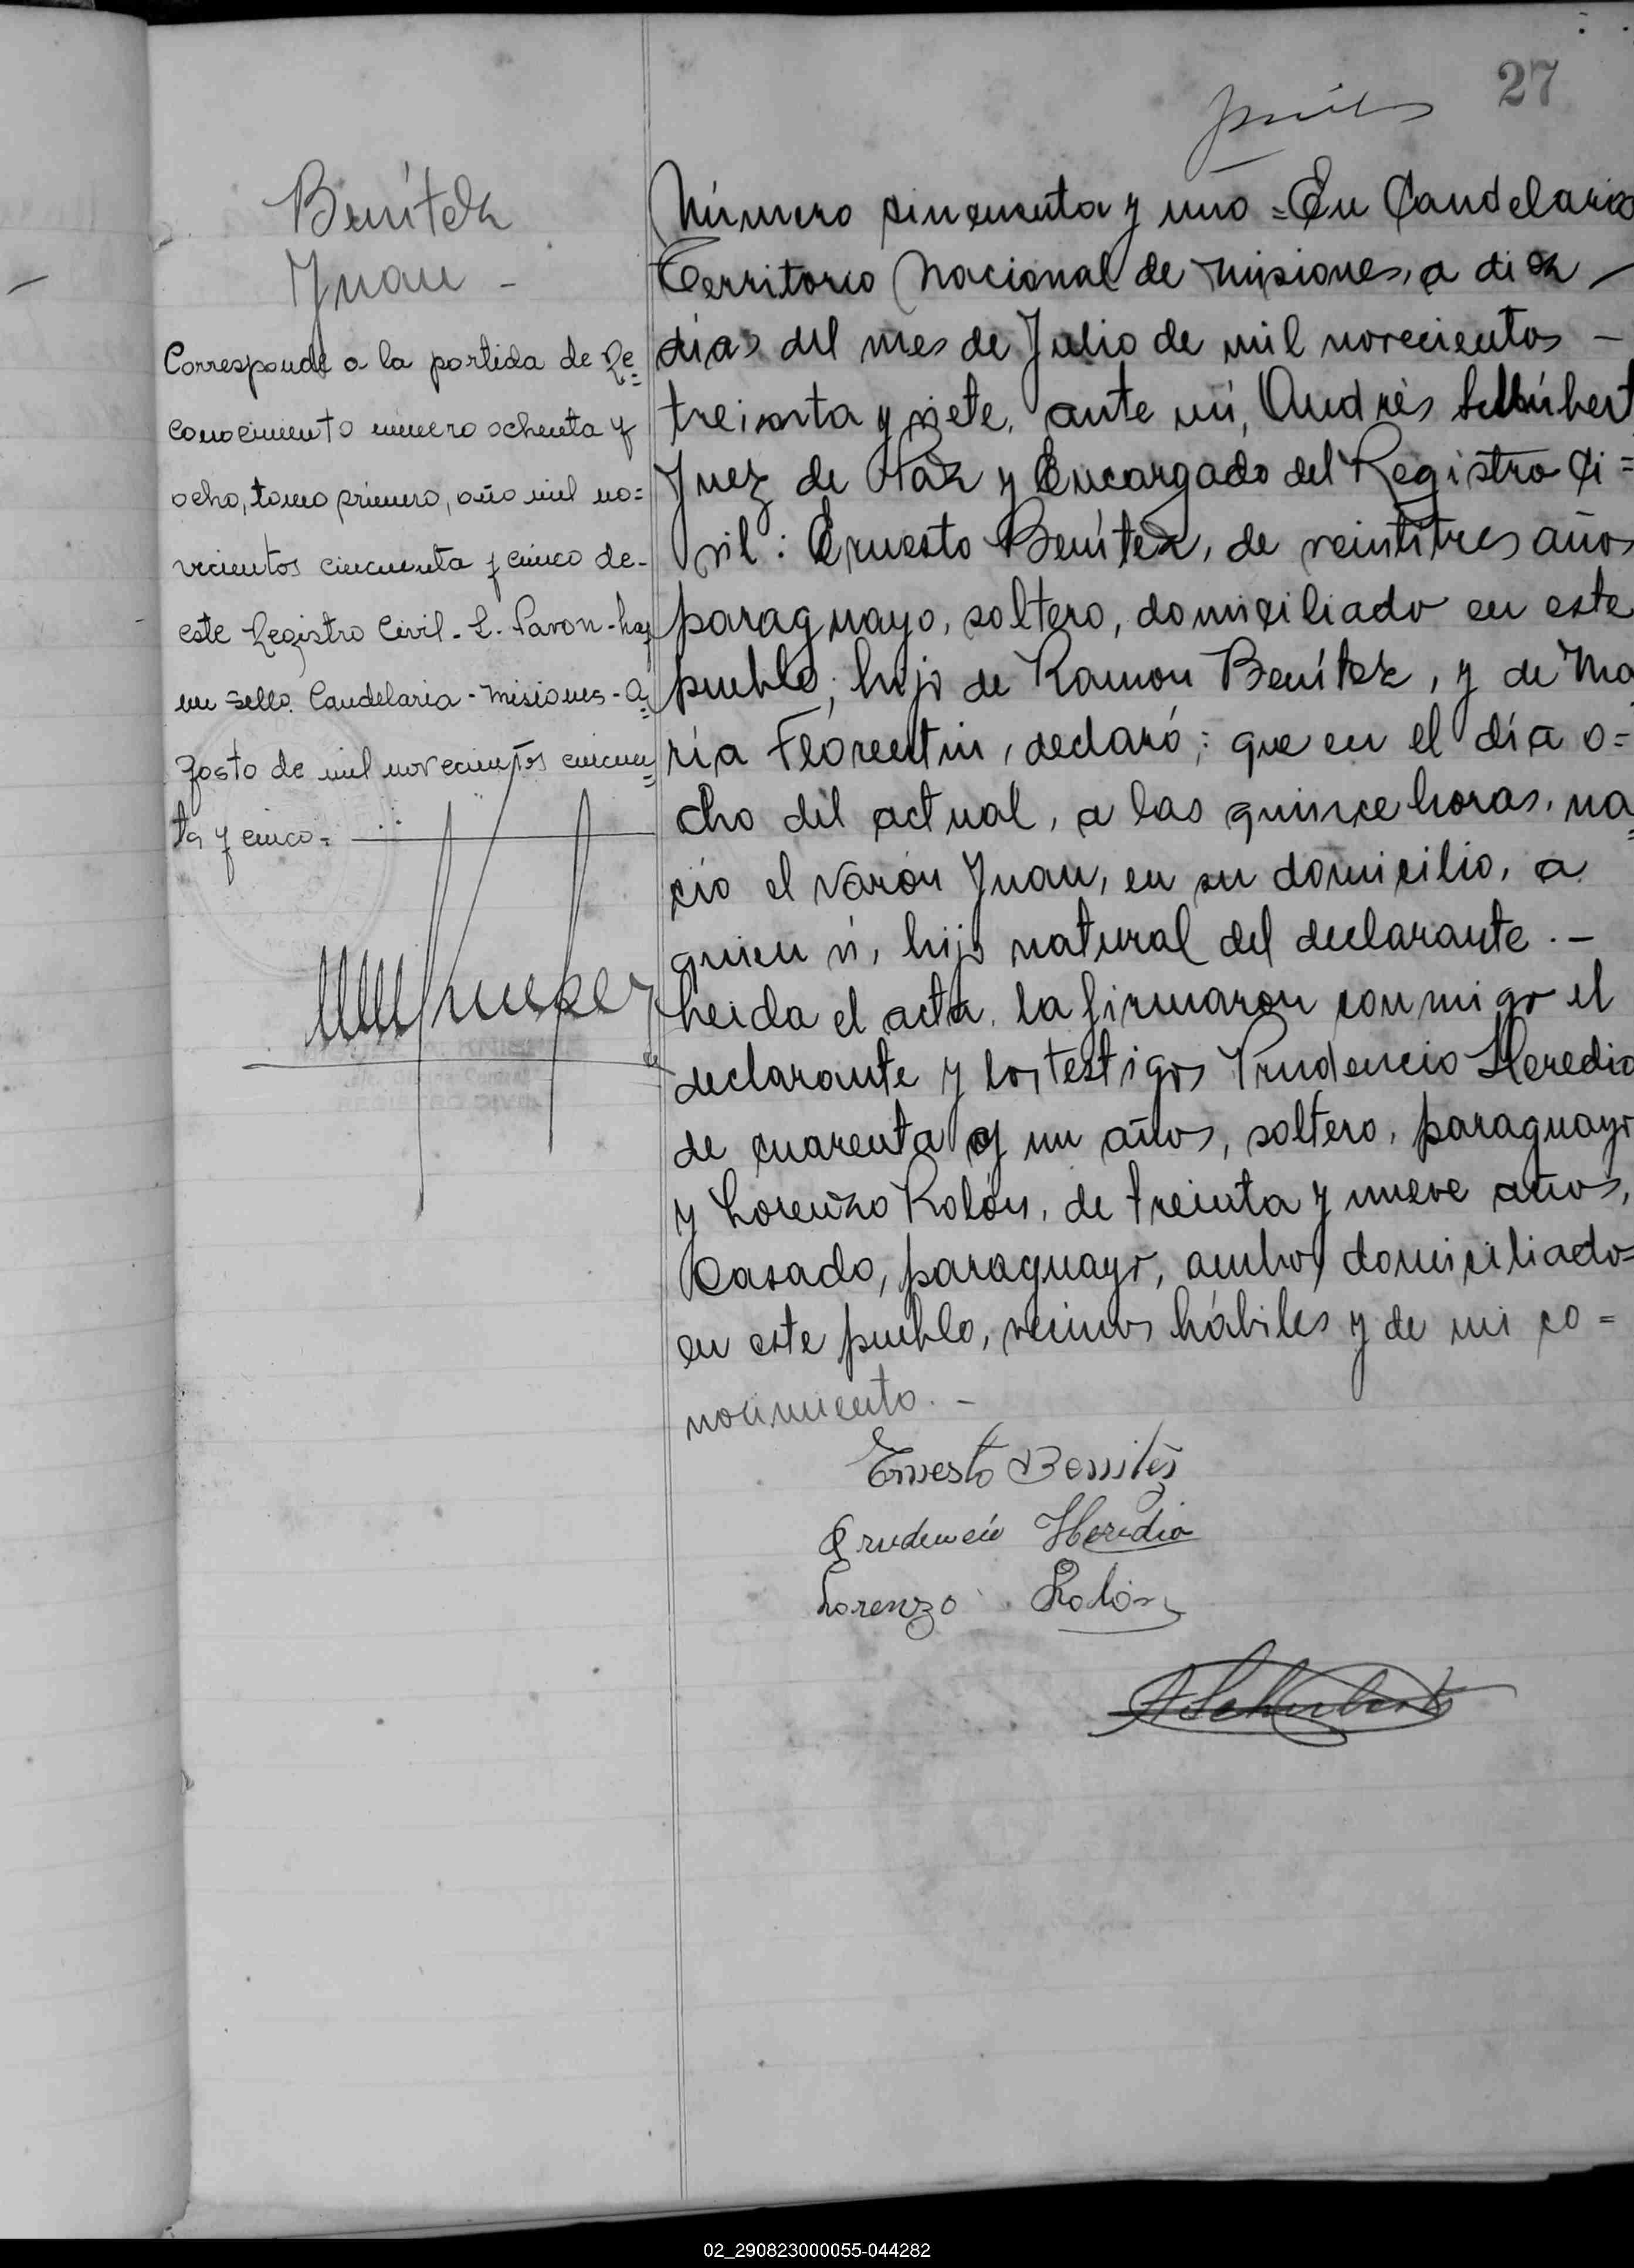 27
Benítez
Juan -
Corresponde a la partida de Re=
conocimiento número ochenta y
ocho, tomo primero, año mil no=
vecientos cincuenta y cinco de-
este Registro Civil - L. Pavon - hay
un sello. Candelaria - Misiones - A=
gosto de mil novecientos cincuen=
ta y cinco.-
Número cincuenta y uno = En Candelaria
Territorio Nacional de Misiones, a diez -
días del mes de Julio de mil novecientos -
treinta y siete, ante mí, Andrés Schúbert
Juez de Paz y Encargado del Registro Ci=
vil: Ernesto Benítez, de veintitres años
paraguayo, soltero, domiciliado en este
pueblo, hijo de Ramon Benítez, y de Ma
ría Florentin, declaró: que en el día o=
cho del actual, a las quince horas, na=
ció el varón Juan, en su domicilio, a
quien ví, hijo natural del declarante.-
Leida el acta, la firmaron conmigo el
declarante y los testigos Prudencio Heredia
de cuarenta y un años, soltero, paraguayo
y Lorenzo Rolón, de treinta y nueve años,
Casado, paraguayo, ambos domiciliados
en este pueblo, vecinos hábiles y de mi co=
nocimiento.-
Ernesto Benites
Prudencio Heredia
Lorenzo Rolón
A Schubert
02_290823000055-044282